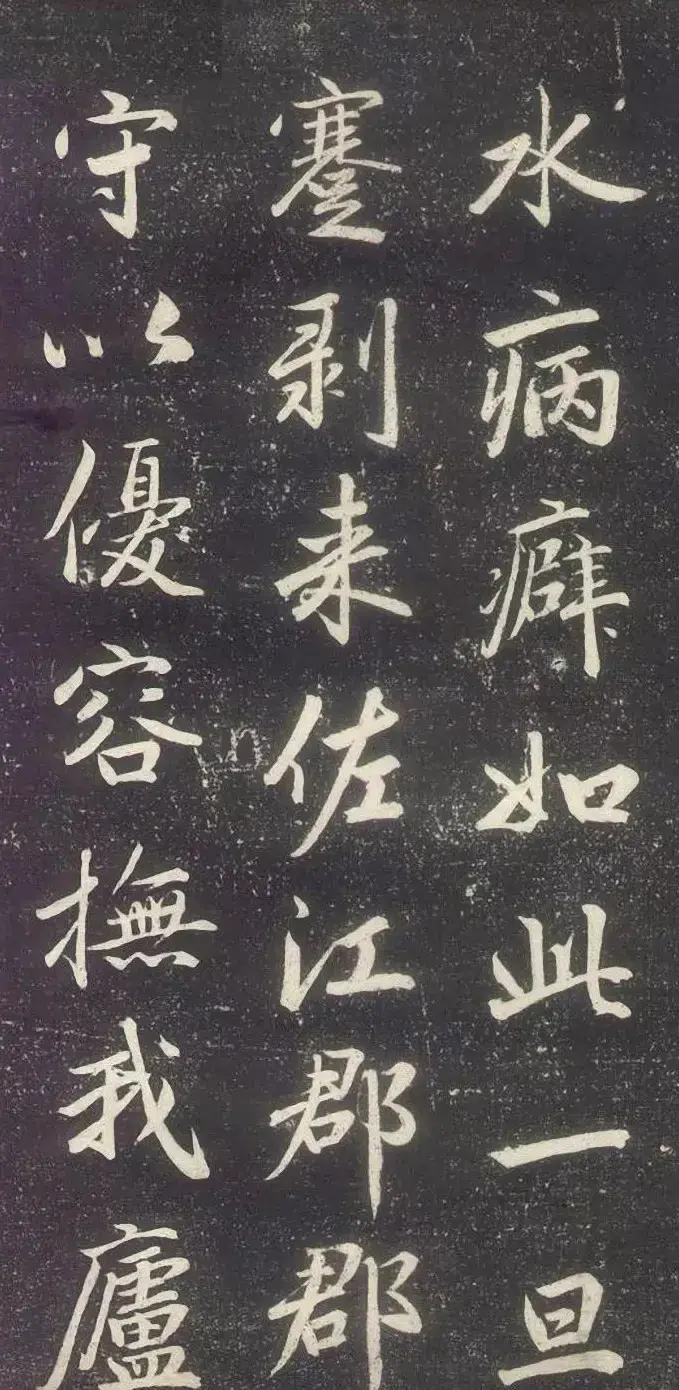 水病癖如此一旦
蹇剥来佐江郡郡
守以優容撫我廬